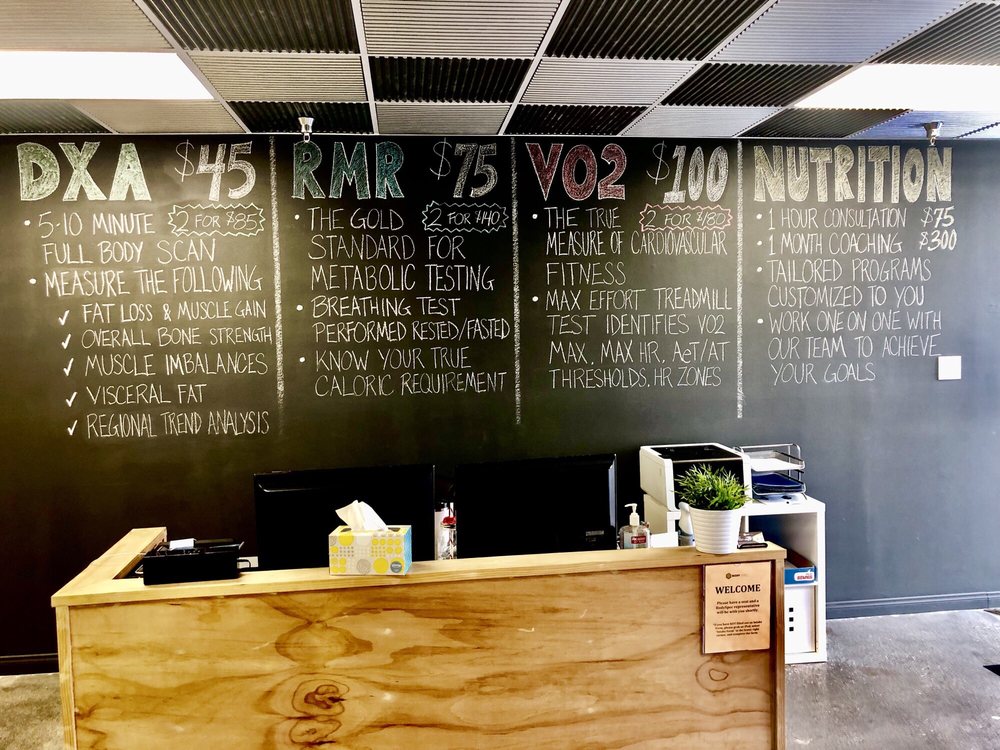 DXA $45
5-10 MINUTE 2 FOR $85
FULL BODY SCAN
MEASURE THE FOLLOWING
✓ FAT LOSS & MUSCLE GAIN
✓ OVERALL BONE STRENGTH
✓ MUSCLE IMBALANCES
✓ VISCERAL FAT
✓ REGIONAL TREND ANALYSIS
RMR $75
• THE GOLD 2 FOR $140
STANDARD FOR
METABOLIC TESTING
• BREATHING TEST
PERFORMED RESTED/FASTED
• KNOW YOUR TRUE
CALORIC REQUIREMENT
VO2 $100
• THE TRUE 2 FOR $180
MEASURE OF CARDIOVASCULAR
FITNESS
• MAX EFFORT TREADMILL
TEST IDENTIFIES VO2
MAX, MAX HR, AeT/AT
THRESHOLDS, HR ZONES
NUTRITION
• 1 HOUR CONSULTATION $75
• 1 MONTH COACHING $300
• TAILORED PROGRAMS
CUSTOMIZED TO YOU
• WORK ONE ON ONE WITH
OUR TEAM TO ACHIEVE
YOUR GOALS
WELCOME
Please have a seat and a
BodySpec representative
will be with you shortly.